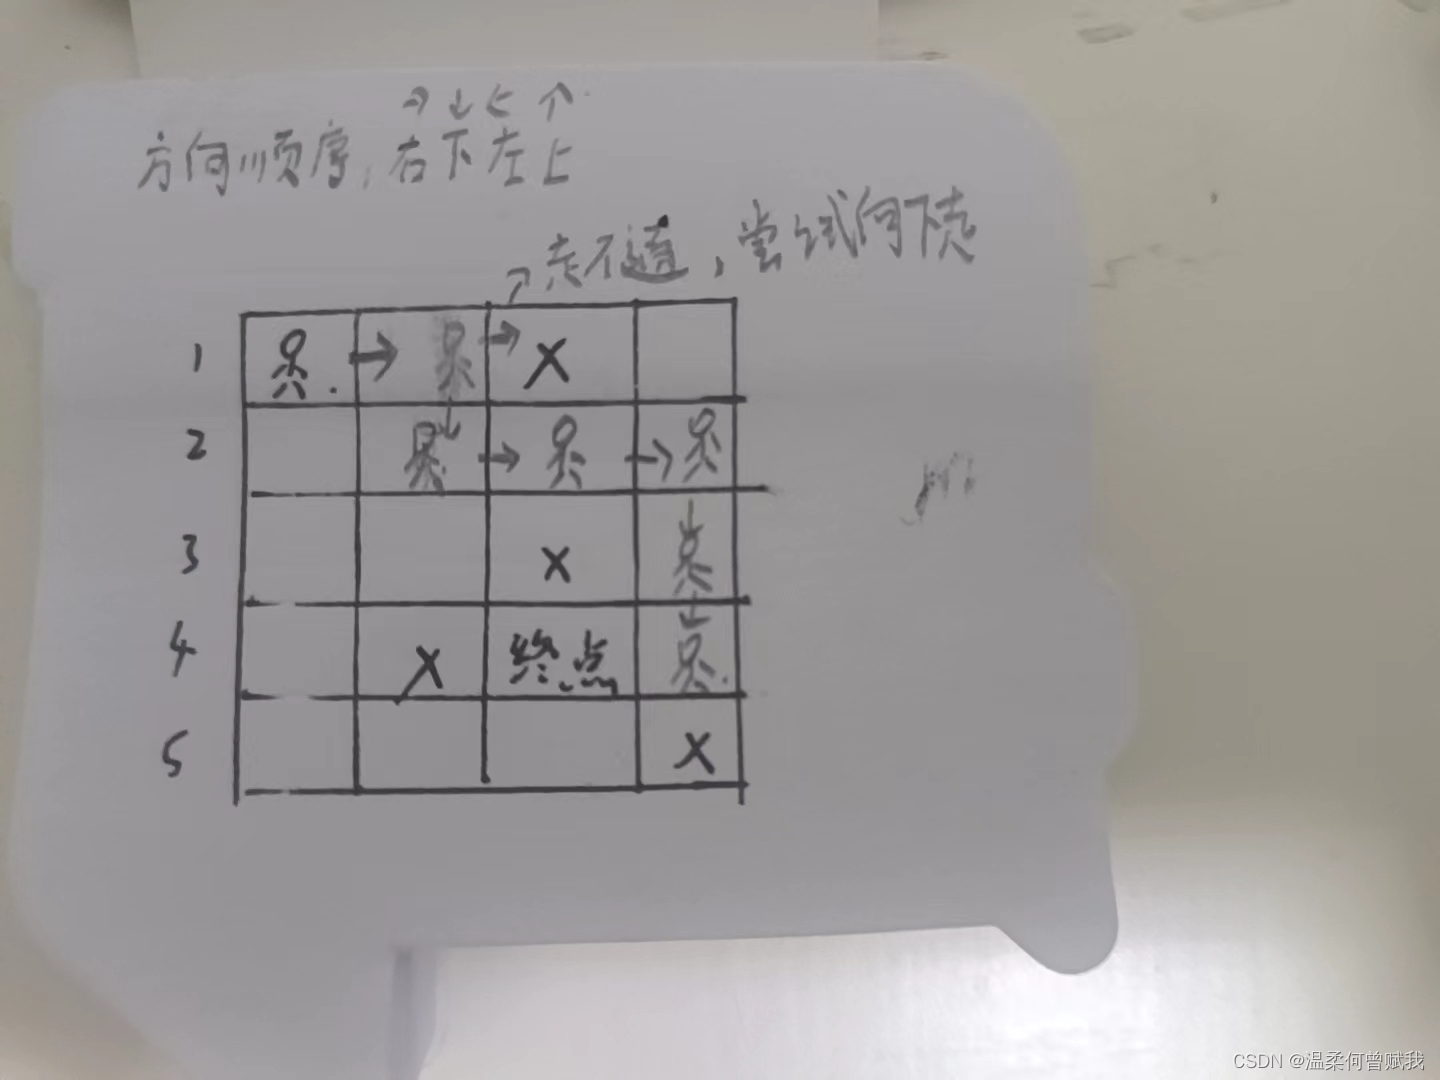 → ↓ ← ↑
方向顺序,右下左上
走不通,尝试向下走
1 X
2
3 X
4 X 终点
5 X
CSDN @温柔何曾赋我